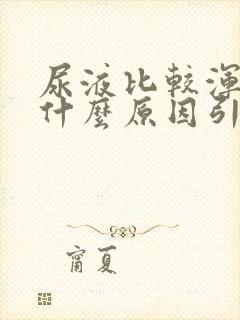 尿液比較渾
什麼原因引
甯夏